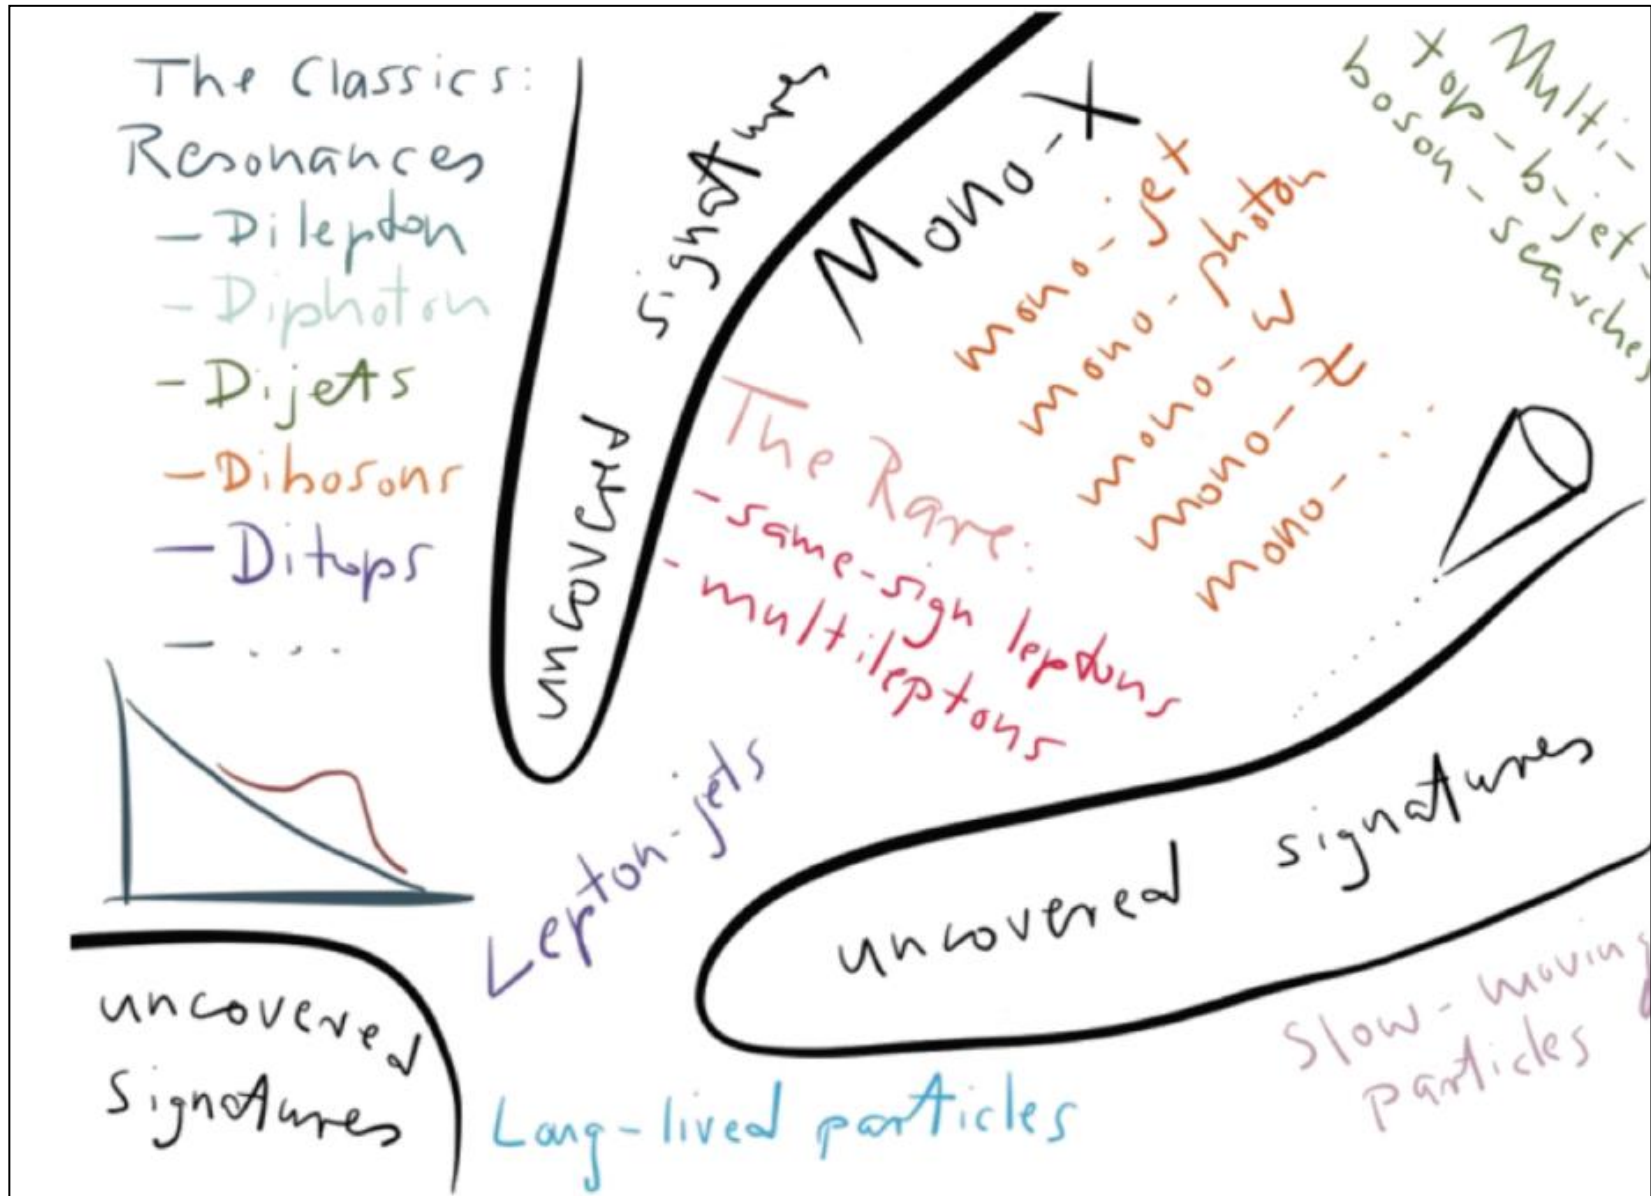 The Classics:
Resonances
- Dilepton
- Diphoton
- Dijets
- Dibosons
- Ditops
- ...
uncovered signatures
Mono-X
mono-jet
mono-photon
mono-W
mono-Z
mono-...
Multi-
top-b-jet-
boson-searches
The Rare:
- same-sign leptons
- multileptons
Lepton-jets
uncovered signatures
uncovered
signatures
Long-lived particles
Slow-moving
particles